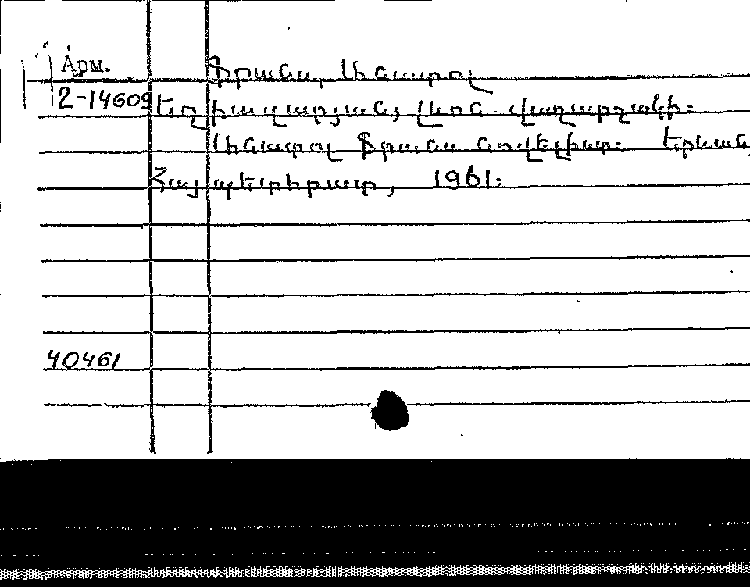 Арм.
Ֆրանս, Անատոլ
2-14609 Եղիազարյան, Լևոն Վաղարշակի.
Անատոլ Ֆրանս նովելիստ. Երևան,
Հայպետհրատ, 1961.
40461